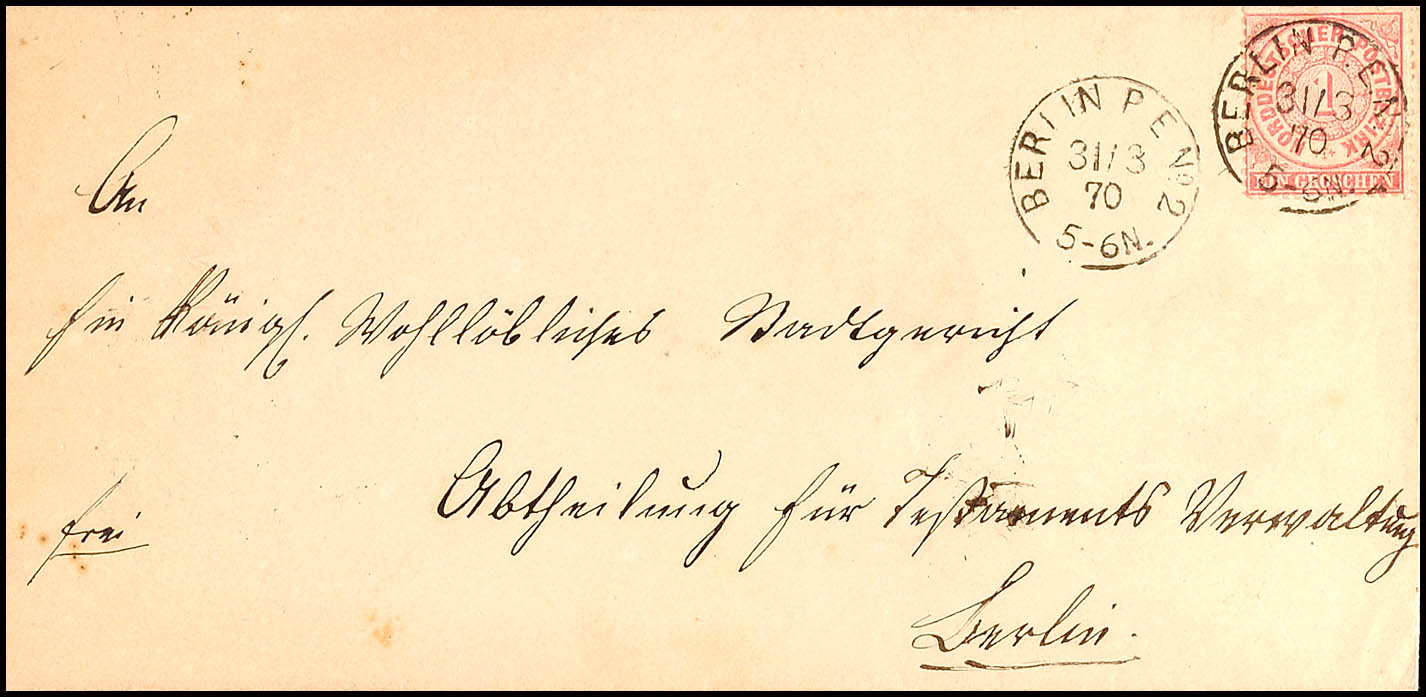 NORDDEUTSCHER POSTBEZIRK
1
EIN GROSCHEN
BERLIN P.E. No 2
31/3
70
5-6N.
BERLIN P E No 2
31/3
70
5-6N.
An
Ein Königl. Wohllöbliches Stadtgericht
Abtheilung für Testaments Verwaltung
frei
Berlin.